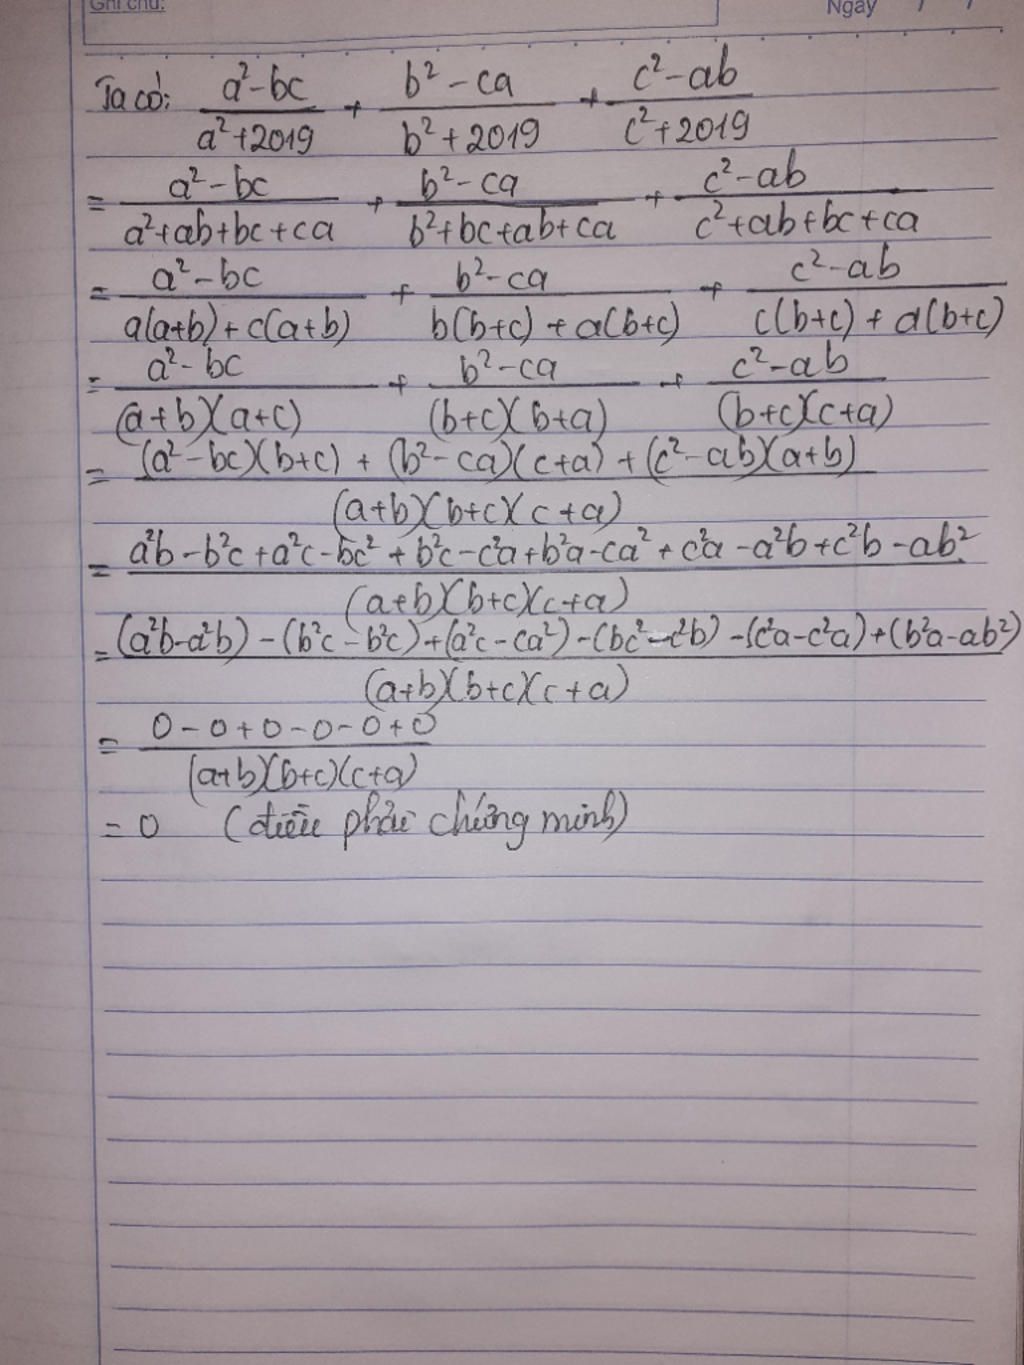 Ghi chú:
Ngày / /
Ta có: \frac{a²-bc}{a²+2019} + \frac{b²-ca}{b²+2019} + \frac{c²-ab}{c²+2019}
= \frac{a²-bc}{a²+ab+bc+ca} + \frac{b²-ca}{b²+bc+ab+ca} + \frac{c²-ab}{c²+ab+bc+ca}
= \frac{a²-bc}{a(a+b)+c(a+b)} + \frac{b²-ca}{b(b+c)+a(b+c)} + \frac{c²-ab}{c(b+c)+a(b+c)}
= \frac{a²-bc}{(a+b)(a+c)} + \frac{b²-ca}{(b+c)(b+a)} + \frac{c²-ab}{(b+c)(c+a)}
= \frac{(a²-bc)(b+c)+(b²-ca)(c+a)+(c²-ab)(a+b)}{(a+b)(b+c)(c+a)}
= \frac{a²b-b²c+a²c-bc²+b²c-c²a+b²a-ca²+c²a-a²b+c²b-ab²}{(a+b)(b+c)(c+a)}
= \frac{(a²b-a²b)-(b²c-b²c)+(a²c-ca²)-(bc²-c²b)-(c²a-c²a)+(b²a-ab²)}{(a+b)(b+c)(c+a)}
= \frac{0-0+0-0-0+0}{(a+b)(b+c)(c+a)}
= 0 (điều phải chứng minh)